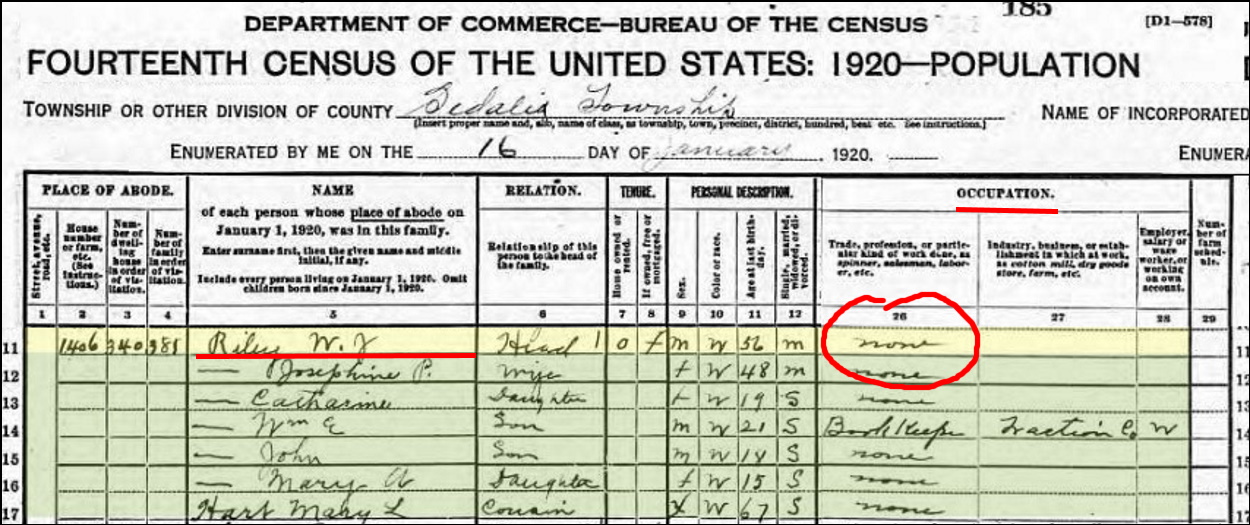 185
DEPARTMENT OF COMMERCE—BUREAU OF THE CENSUS [D1—578]
FOURTEENTH CENSUS OF THE UNITED STATES: 1920—POPULATION
TOWNSHIP OR OTHER DIVISION OF COUNTY Sedalia Township NAME OF INCORPORATED
[Insert proper name and, also, name of class, as township, town, precinct, district, hundred, beat etc. See instructions.]
ENUMERATED BY ME ON THE 16 DAY OF January, 1920. ENUMERA
PLACE OF ABODE. NAME RELATION. TENURE. PERSONAL DESCRIPTION. OCCUPATION.
Street, avenue, road, etc.
House number or farm, etc. (See instructions.)
Num-
ber of
dwell-
ing
house
in order
of vis-
itation.
Num-
ber of
family
in order
of vis-
itation.
of each person whose place of abode on
January 1, 1920, was in this family.
Enter surname first, then the given name and middle
initial, if any.
Include every person living on January 1, 1920. Omit
children born since January 1, 1920.
Relationship of this
person to the head of
the family.
Home owned or rented.
If owned, free or mortgaged.
Sex.
Color or race.
Age at last birth-
day.
Single, married,
widowed, or di-
vorced.
Trade, profession, or partic-
ular kind of work done, as
spinner, salesman, labor-
er, etc.
Industry, business, or estab-
lishment in which at work,
as cotton mill, dry goods
store, farm, etc.
Employer,
salary or
wage
worker, or
working
on own
account.
Num-
ber of
farm
sched-
ule.
1 2 3 4 5 6 7 8 9 10 11 12 26 27 28 29
11 1406 340 381 Riley W. J Head 1 O f m W 56 m none 11
12 — Josephine P. Wife f W 48 m none 12
13 — Catharine Daughter f W 19 S none 13
14 — Wm E Son m W 21 S Book Keeper Traction Co W 14
15 — John Son m W 14 S none 15
16 — Mary A Daughter f W 15 S none 16
17 Hart Mary L Cousin f W 67 S none 17